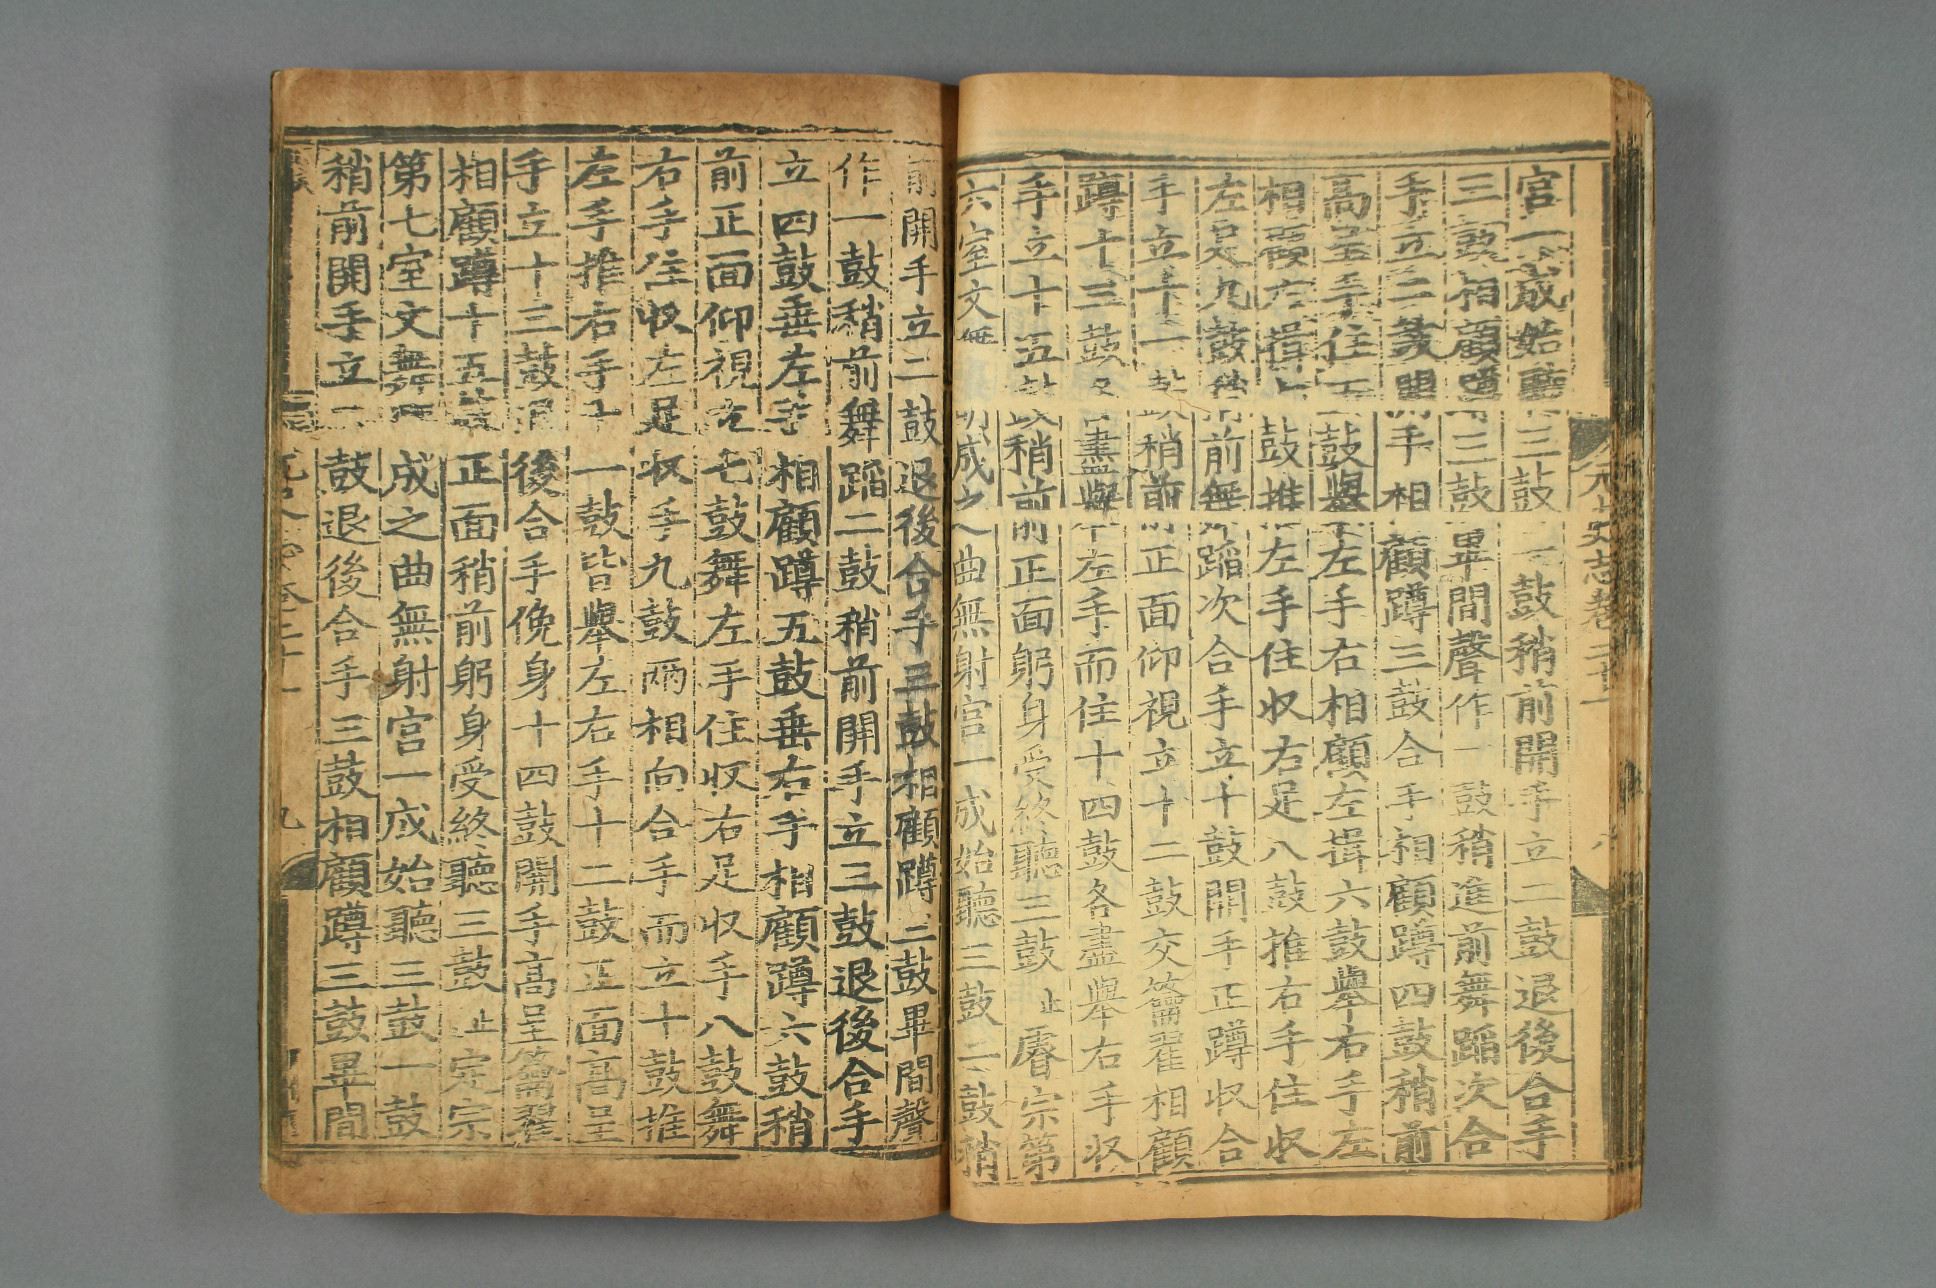 宮一成始聽三鼓一鼓稍前開手立二鼓退後合手
三鼓相顧蹲三鼓畢間聲作一鼓稍進前舞蹈次合
手立二鼓開手相顧蹲三鼓合手相顧蹲四鼓稍前
高呈手住五鼓舉左手右相顧左揖六鼓舉右手左
相顧右揖七鼓推左手住收右足八鼓推右手住收
左足九鼓稍前舞蹈次合手立十鼓開手正蹲收合
手立十一鼓稍前正面仰視立十二鼓交籥翟相顧
蹲十三鼓各盡舉左手而住十四鼓各盡舉右手收
手立十五鼓稍前正面躬身受終聽三鼓止睿宗第
六室文舞成之曲無射宮一成始聽三鼓一鼓稍
元史志卷二十一 八
前開手立二鼓退後合手三鼓相顧蹲三鼓畢間聲
作一鼓稍前舞蹈二鼓稍前開手立三鼓退後合手
立四鼓垂左手相顧蹲五鼓垂右手相顧蹲六鼓稍
前正面仰視立七鼓舞左手住收右足收手八鼓舞
右手住收左足收手九鼓兩相向合手而立十鼓推
左手推右手十一鼓皆舉左右手十二鼓正面高呈
手立十三鼓退後合手俛身十四鼓開手高呈籥翟
相顧蹲十五鼓正面稍前躬身受終聽三鼓止定宗
第七室文舞成之曲無射宮一成始聽三鼓一鼓
稍前開手立二鼓退後合手三鼓相顧蹲三鼓畢間
九